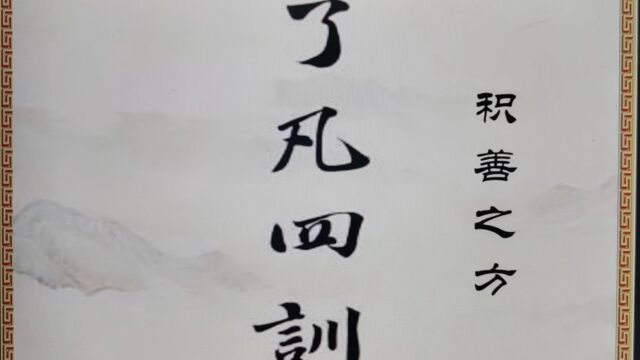 了凡四訓
积善之方